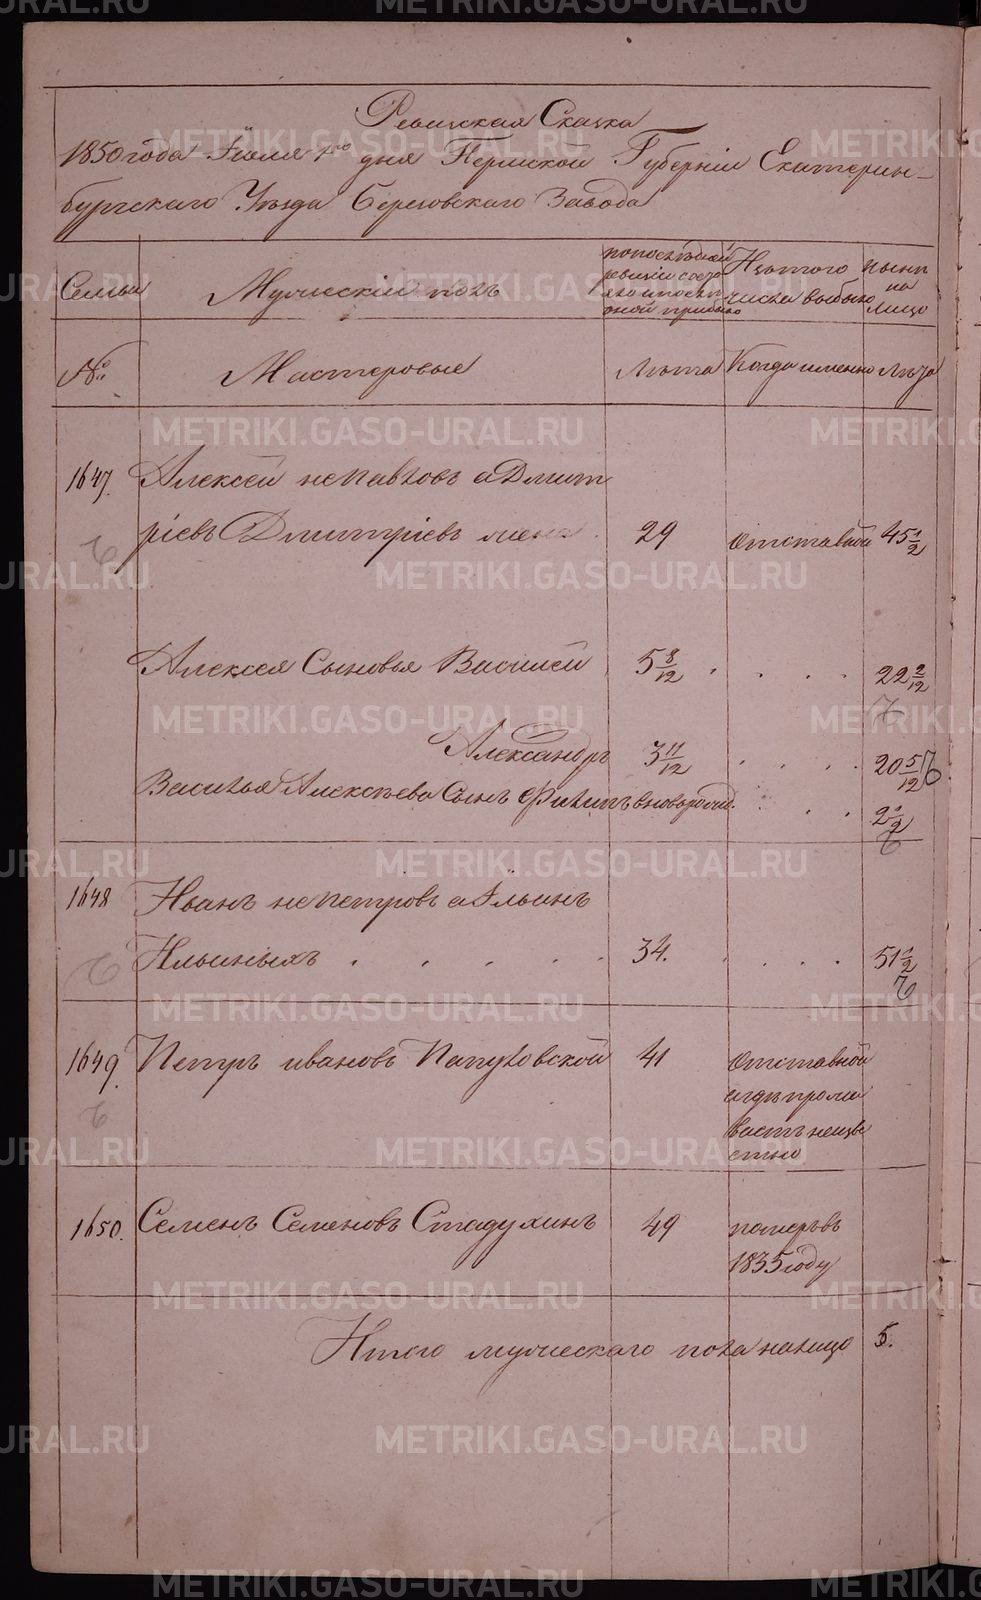 Ревижская Сказка
1850 года Іюля 1го дня Пермской Губерніи Екатерин-
бургскаго Уезда Березовскаго Завода
Семьи
Мужескій полъ
по последней
ревизіи состо
яло и после
оной прибыло
Изъ того
числа выбыло
ныне
на
лицо
№
Мастеровые
Лета
Когда именно
Лета
1647.
Алексей не Павловъ а Дмит
ріевъ Дмитріевъ
29
отставной
45 1/2
Алексея Сыновья Василей
5 8/12
22 2/12
Александръ
3 11/12
20 5/12
Василья Алексеева Сынъ Филипъ вноворожд.
2 1/2
1648
Иванъ не Петровъ а Ильинъ
Ильиныхъ
34.
51 1/2
1649.
Петръ ивановъ Папуловской
41
отставной
и где прожи
ваетъ неизве
стно
1650.
Семенъ Семеновъ Стадухинъ
49
померъ въ
1835 году
Итого мужескаго пола налицо
5.
METRIKI.GASO-URAL.RU